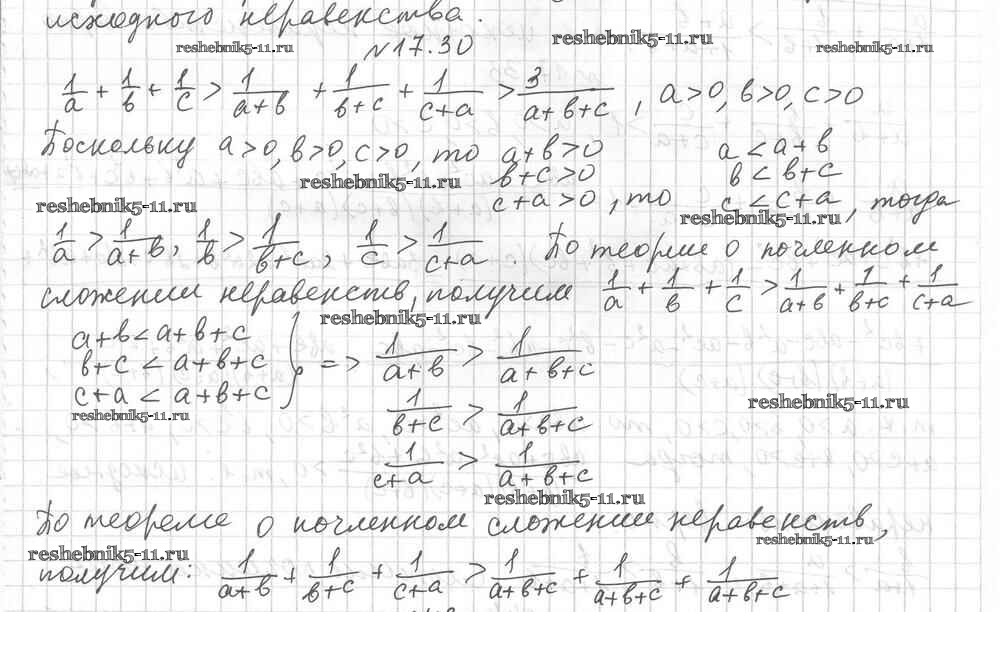 исходного неравенства.
reshebnik5-11.ru reshebnik5-11.ru reshebnik5-11.ru
№17.30
1/a + 1/в + 1/c > 1/(a+в) + 1/(в+c) + 1/(c+a) > 3/(a+в+c), a>0, в>0, c>0
Поскольку a>0, в>0, c>0, то a+в>0 a<a+в
reshebnik5-11.ru в+c>0 в<в+c
reshebnik5-11.ru c+a>0, то c<c+a, тогда
reshebnik5-11.ru
1/a > 1/(a+в), 1/в > 1/(в+c), 1/c > 1/(c+a) По теории о почленном
сложении неравенств, получим 1/a + 1/в + 1/c > 1/(a+в) + 1/(в+c) + 1/(c+a)
reshebnik5-11.ru
a+в<a+в+c
в+c<a+в+c } => 1/(a+в) > 1/(a+в+c)
c+a<a+в+c
reshebnik5-11.ru reshebnik5-11.ru
1/(в+c) > 1/(a+в+c)
1/(c+a) > 1/(a+в+c)
reshebnik5-11.ru
По теореме о почленном сложении неравенств,
reshebnik5-11.ru reshebnik5-11.ru
получим: 1/(a+в) + 1/(в+c) + 1/(c+a) > 1/(a+в+c) + 1/(a+в+c) + 1/(a+в+c)